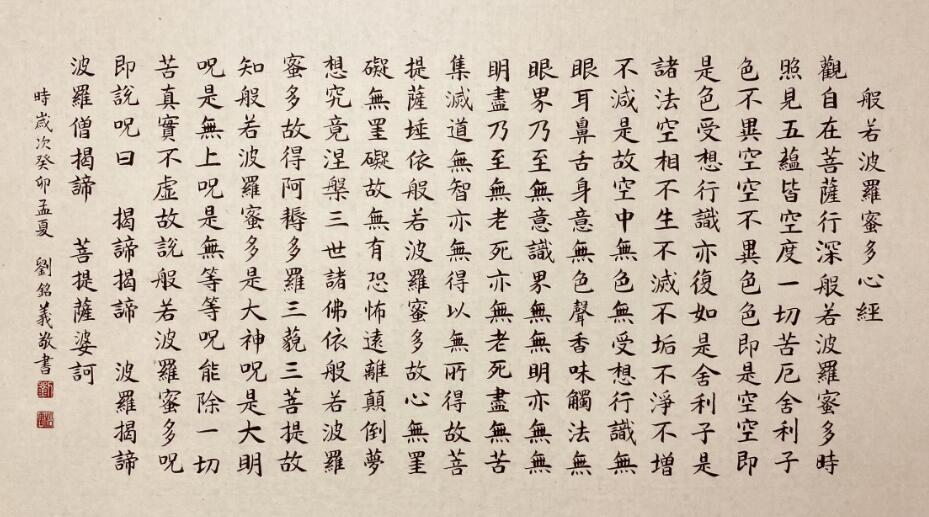 般若波羅蜜多心經
觀自在菩薩行深般若波羅蜜多時
照見五蘊皆空度一切苦厄舍利子
色不異空空不異色色即是空空即
是色受想行識亦復如是舍利子是
諸法空相不生不滅不垢不淨不增
不減是故空中無色無受想行識無
眼耳鼻舌身意無色聲香味觸法無
眼界乃至無意識界無無明亦無無
明盡乃至無老死亦無老死盡無苦
集滅道無智亦無得以無所得故菩
提薩埵依般若波羅蜜多故心無罣
礙無罣礙故無有恐怖遠離顛倒夢
想究竟涅槃三世諸佛依般若波羅
蜜多故得阿耨多羅三藐三菩提故
知般若波羅蜜多是大神呪是大明
呪是無上呪是無等等呪能除一切
苦真實不虛故說般若波羅蜜多呪
即說呪曰 揭諦揭諦 波羅揭諦
波羅僧揭諦 菩提薩婆訶
時歲次癸卯孟夏 劉銘義敬書